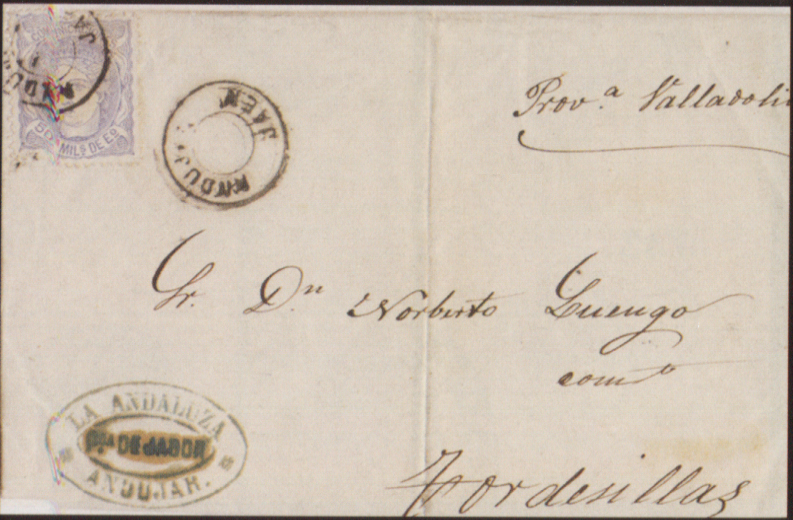 50 MILS DE EO
JAEN
ANDUJ
Prov.a Valladoli
Sr. Dn Norberto Luengo
comto
Tordesillas
LA ANDALUZA
DE JABON
ANDUJAR.